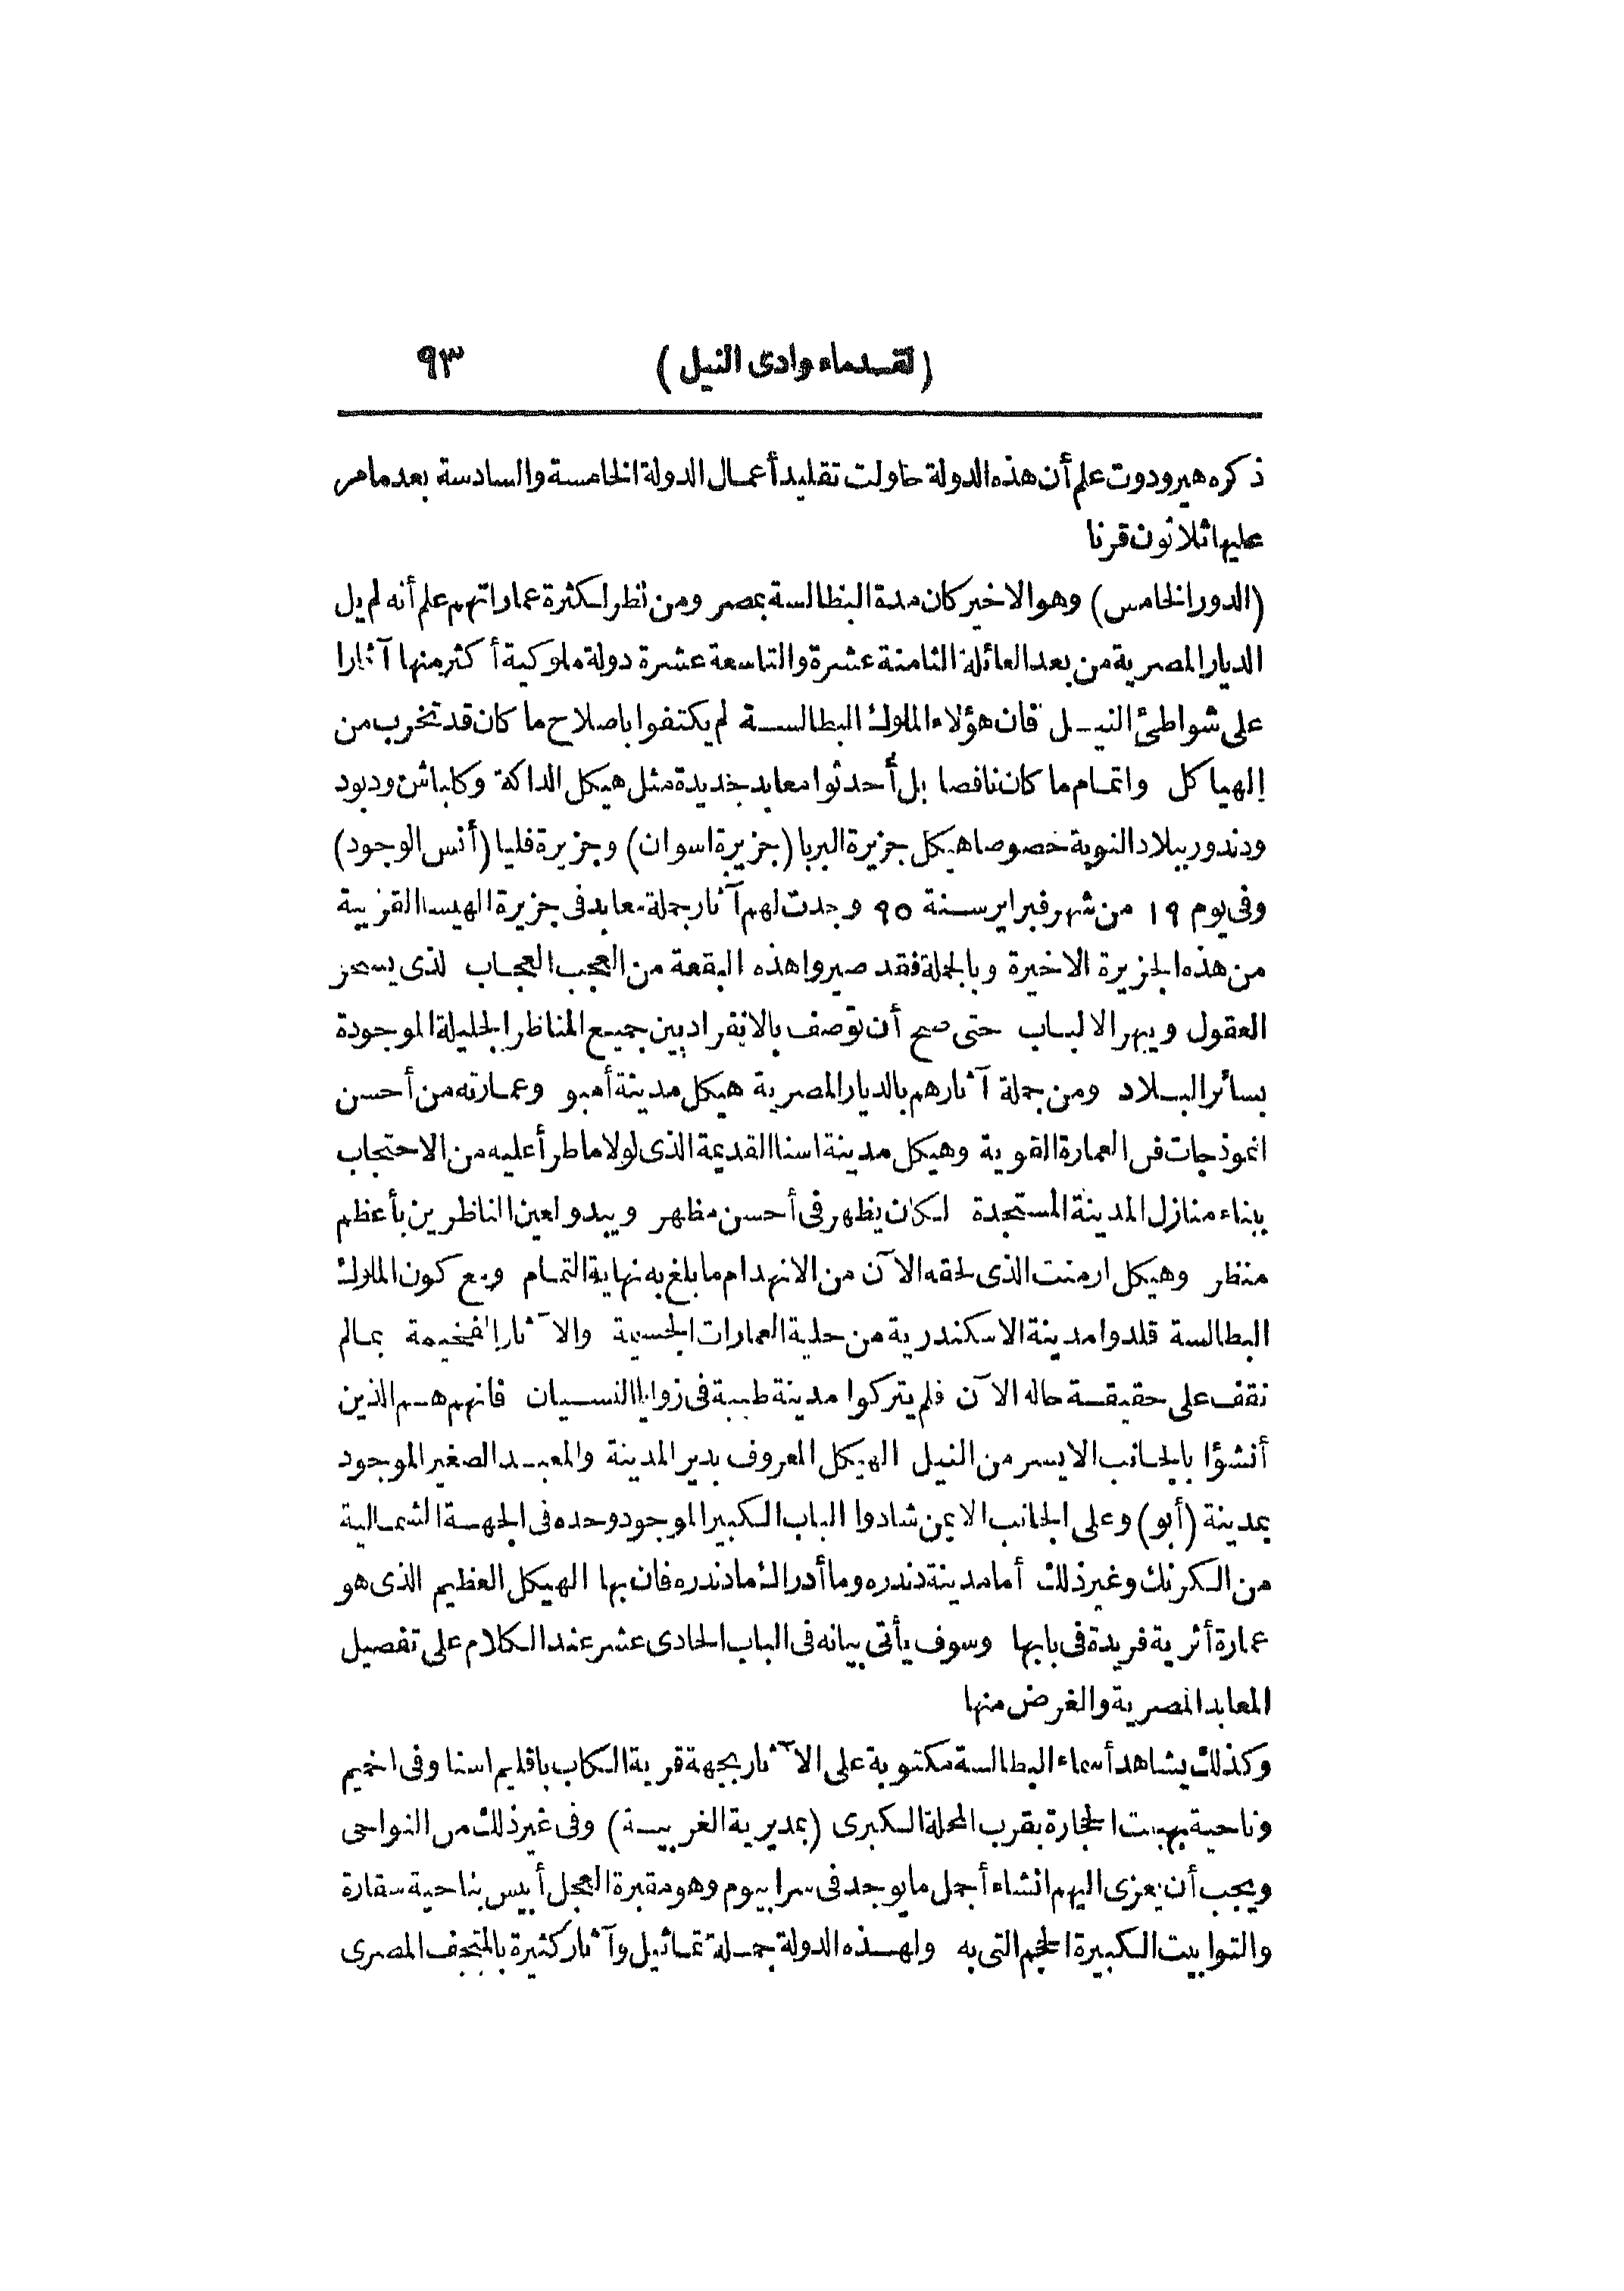 (لقدماء وادى النيل) ٩٣
ذكره هيرودوت علم أن هذه الدولة حاولت تقليد أعمال الدولة الخامسة والسادسة بعد ما مر
عليها ثلاثون قرنا
(الدور الخامس) وهو الاخير كان مدة البطالسة بمصر ومن نظر لكثرة عماراتهم علم أنه لم يل
الديار المصرية من بعد العائلة الثامنة عشرة والتاسعة عشرة دولة ملوكية أكثر منها آثارا
على شواطئ النيل فان هؤلاء الملوك البطالسة لم يكتفوا باصلاح ما كان قد تخرب من
الهياكل واتمام ما كان ناقصا بل أحدثوا معابد جديدة مثل هيكل الداكة وكلباش ودبود
ودندور ببلاد النوبة خصوصا هيكل جزيرة البربا (جزيرة اسوان) وجزيرة فليا (أنس الوجود)
وفى يوم ١٩ من شهر فبراير سنة ٩٥ وجدت لهم آثار جملة معابد فى جزيرة الهيسا القريبة
من هذه الجزيرة الاخيرة وبالجملة فقد صيروا هذه البقعة من العجب العجاب لذى يسحر
العقول ويبهر الالباب حتى صح أن توصف بالانفراد بين جميع المناظر الجليلة الموجودة
بسائر البلاد ومن جملة آثارهم بالديار المصرية هيكل مدينة أمبو وعمارته من أحسن
انموذجات فن العمارة القوية وهيكل مدينة اسنا القديمة الذى لولا ما طرأ عليه من الاحتجاب
ببناء منازل المدينة المستجدة لكان يظهر فى أحسن مظهر ويبدو لعين الناظرين بأعظم
منظر وهيكل ارمنت الذى لحقه الآن من الانهدام ما بلغ به نهاية التمام ومع كون الملوك
البطالسة قلدوا مدينة الاسكندرية من حلية العمارات الجسيمة والآثار الفخيمة بمالم
نقف على حقيقة حاله الآن فلم يتركوا مدينة طيبة فى زوايا النسيان فانهم هم الذين
أنشؤا بالجانب الايسر من النيل الهيكل المعروف بدير المدينة والمعبد الصغير الموجود
بمدينة (أبو) وعلى الجانب الايمن شادوا الباب الكبير الموجود وحده فى الجهة الشمالية
من الكرنك وغير ذلك أما مدينة دندره وما أدراك ما دندره فان بها الهيكل العظيم الذى هو
عمارة أثرية فريدة فى بابها وسوف يأتى بيانه فى الباب الحادى عشر عند الكلام على تفصيل
المعابد المصرية والغرض منها
وكذلك يشاهد أسماء البطالسة مكتوبة على الآثار بجهة قرية الكاب باقليم اسنا وفى اخميم
وناحية بهبيت الحجارة بقرب المحلة الكبرى (بمديرية الغربية) وفى غير ذلك من النواحى
ويجب أن يعزى اليهم انشاء أجمل ما يوجد فى سرابيوم وهو مقبرة العجل أبيس بناحية سقارة
والتوابيت الكبيرة الحجم التى به ولهذه الدولة جملة تماثيل وآثار كثيرة بالمتحف المصرى